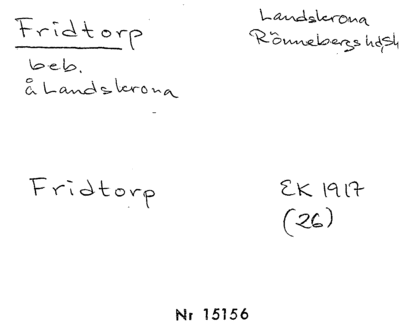 Fridtorp
Landskrona
Rönnebergs hd, Sk
beb.
å Landskrona
Fridtorp
EK 1917
(26)
Nr 15156